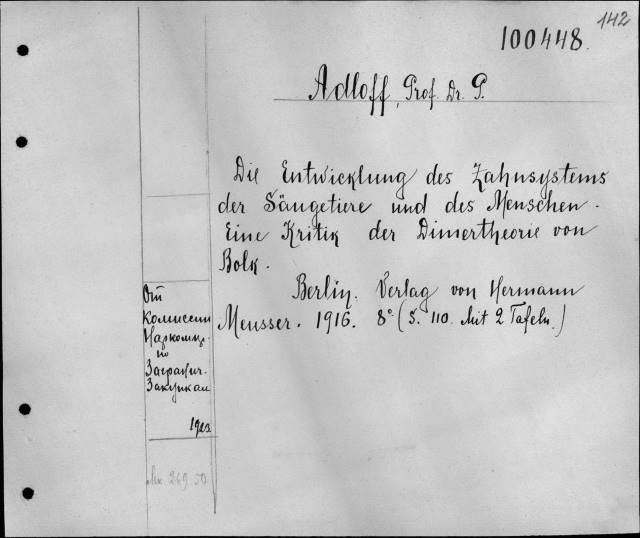 142
100448.
Adloff, Prof. Dr. P.
Die Entwicklung des Zahnsystems
der Säugetiere und des Menschen.
Eine Kritik der Dimertheorie von
Bolk.
Berlin. Verlag von Hermann
Meusser. 1916. 8° (S. 110. Mit 2 Tafeln.)
От
Комиссии
по
Заранич.
Закупкам
269.50